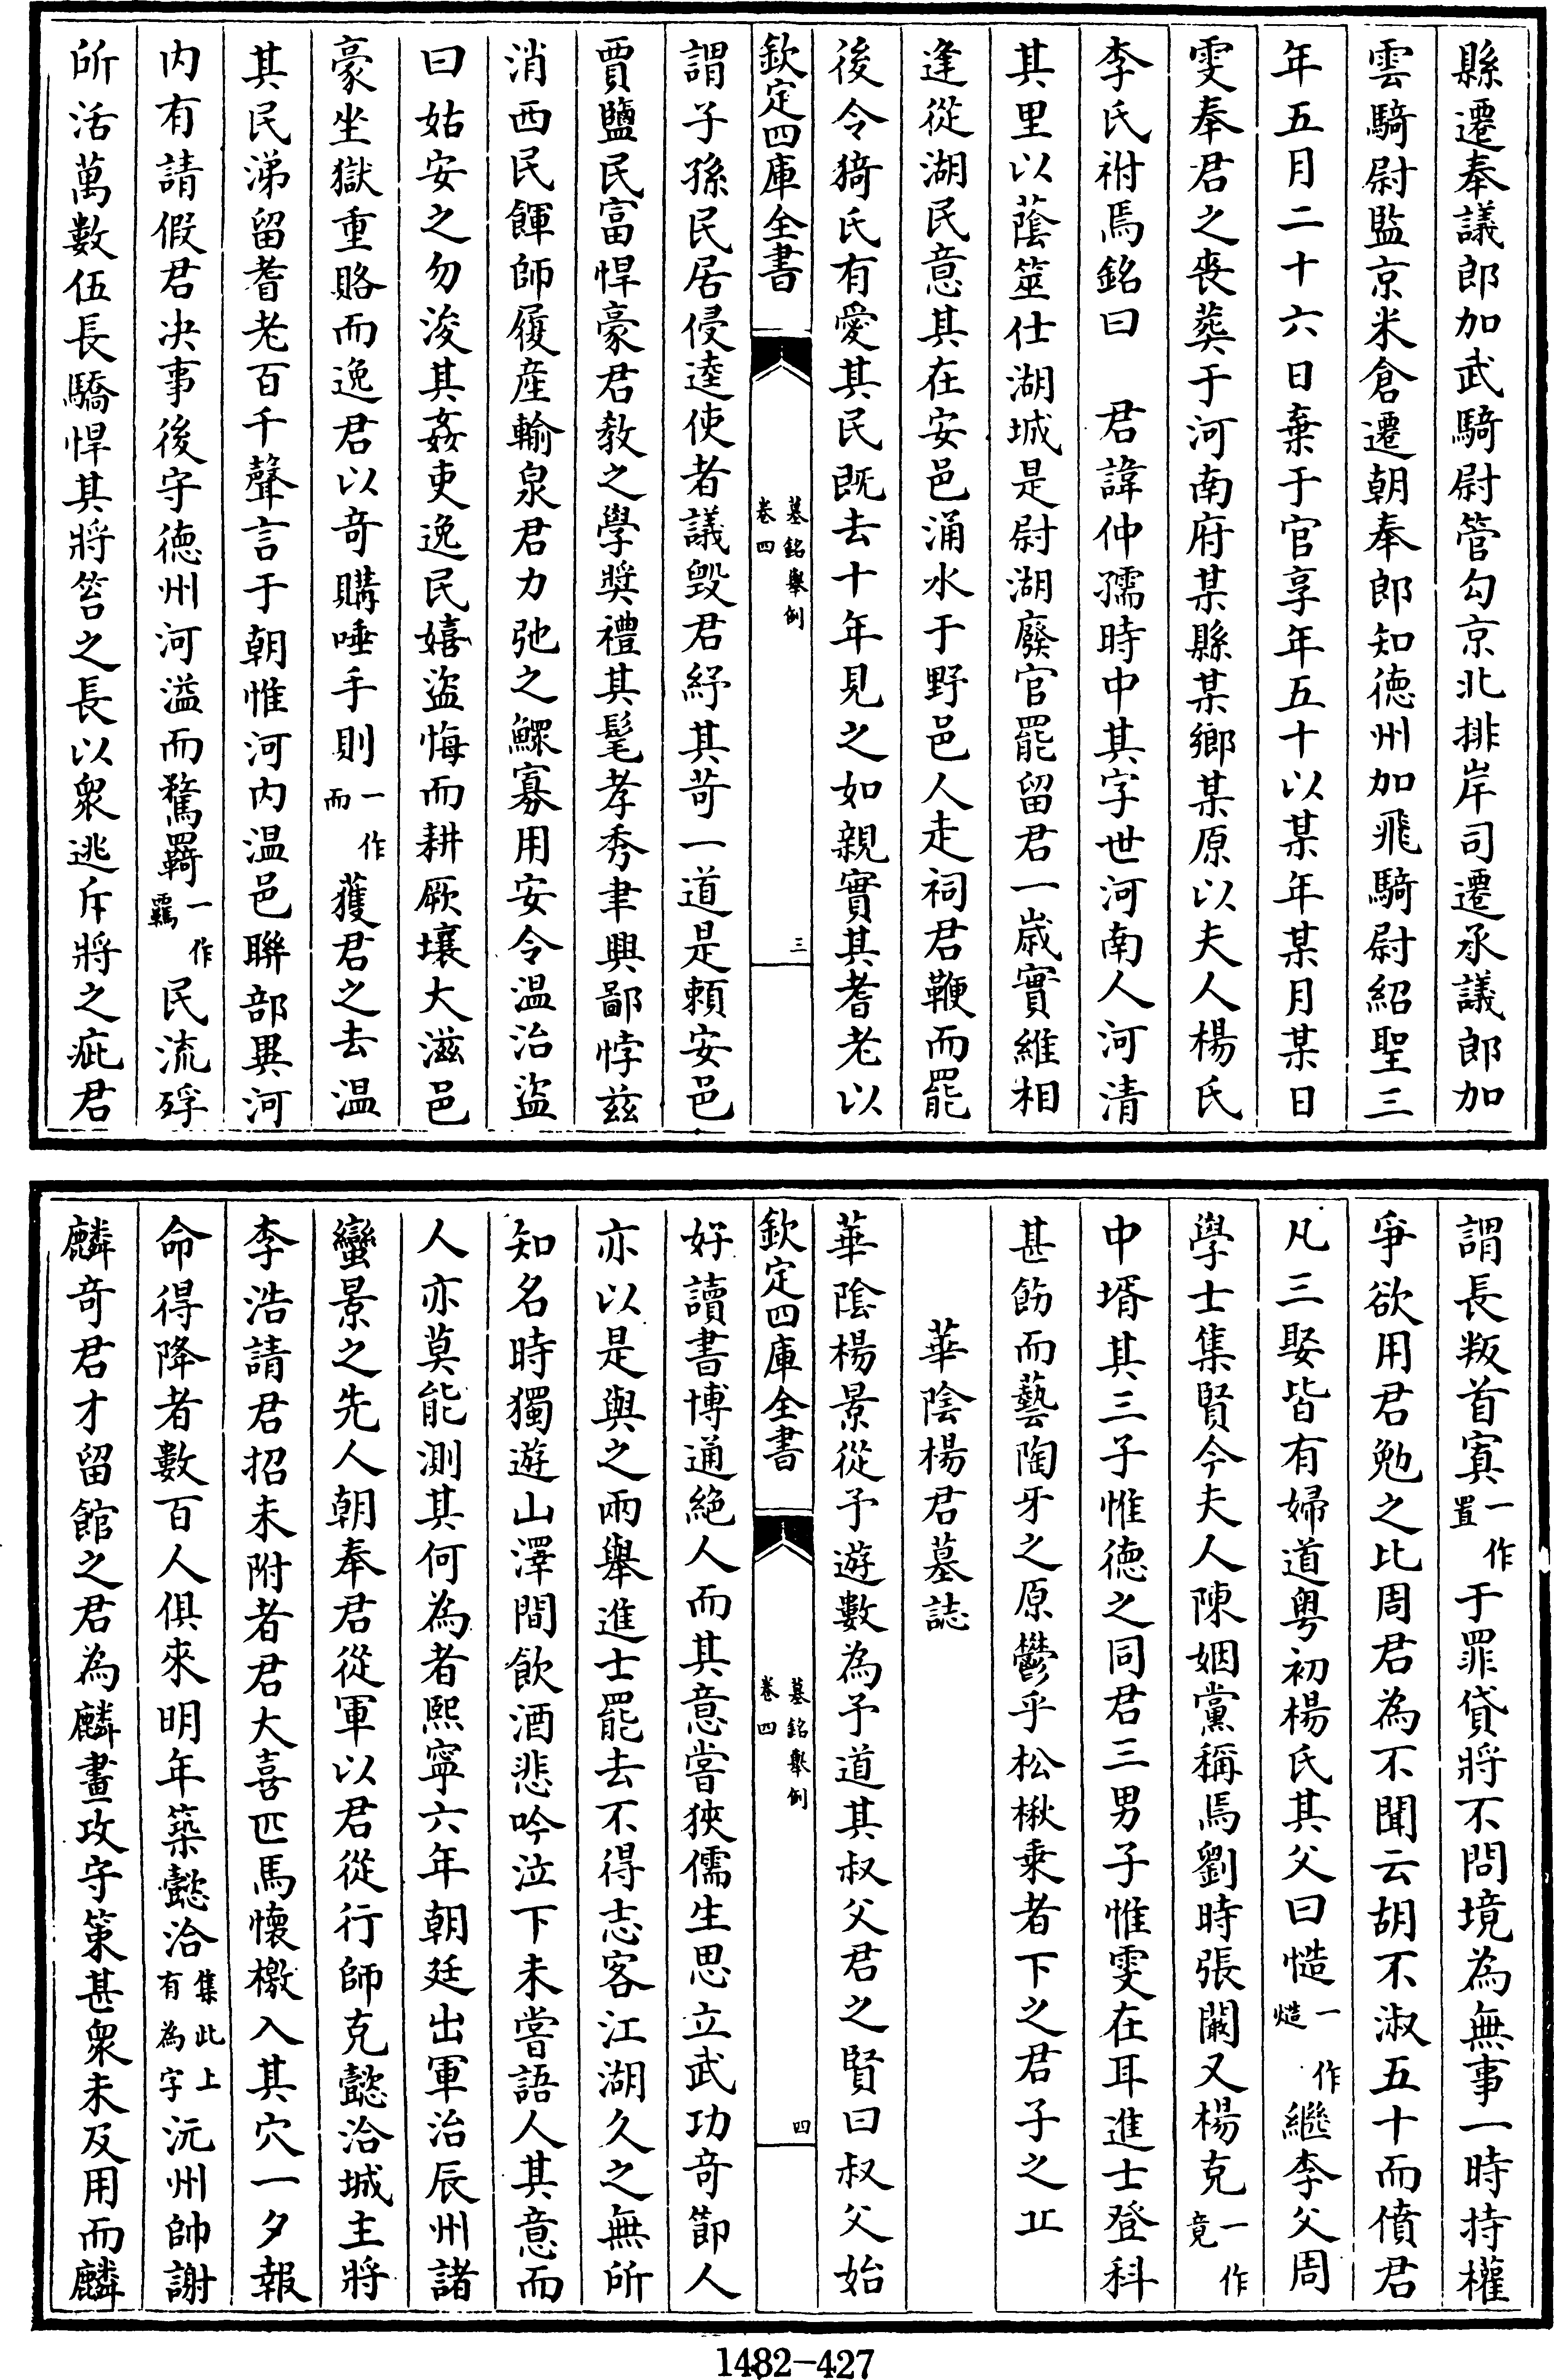 縣遷奉議郎加武騎尉管勾京北排岸司遷承議郎加
雲騎尉監京米倉遷朝奉郎知徳州加飛騎尉紹聖三
年五月二十六日棄于官享年五十以某年某月某日
雯奉君之喪葬于河南府某縣某鄉某原以夫人楊氏
李氏祔焉銘曰　君諱仲孺時中其字世河南人河清
其里以蔭筮仕湖城是尉湖廢官罷留君一歳實維相
逢從湖民意其在安邑涌水于野邑人走祠君鞭而罷
後令猗氏有愛其民既去十年見之如親實其耆老以
欽定四庫全書
墓銘舉例
卷四
三
謂子孫民居侵逵使者議毀君紓其苛一道是頼安邑
賈鹽民富悍豪君敎之學奬禮其髦孝秀聿興鄙悖兹
消西民餫師履産輸泉君力弛之鰥寡用安令温治盜
曰姑安之勿浚其姦吏逸民嬉盜悔而耕厥壤大滋邑
豪坐獄重賂而逸君以奇購唾手則一作而獲君之去温
其民涕留耆老百千聲言于朝惟河内温邑聯部異河
内有請假君决事後守徳州河溢而騖羇一作覊民流殍
所活萬數伍長驕悍其將笞之長以衆逃斥將之疵君
謂長叛首寘一作置于罪貸將不問境為無事一時持權
爭欲用君勉之比周君為不聞云胡不淑五十而僨君
凡三娶皆有婦道粤初楊氏其父曰慥一作𤏪繼李父周
學士集賢今夫人陳姻黨稱焉劉時張闞又楊克一作竟
中壻其三子惟徳之同君三男子惟雯在耳進士登科
甚飭而藝陶牙之原鬱乎松楸乘者下之君子之丘
華陰楊君墓誌
華陰楊景從予遊數為予道其叔父君之賢曰叔父始
欽定四庫全書
墓銘舉例
卷四
四
好讀書博通絶人而其意嘗狹儒生思立武功奇節人
亦以是與之兩舉進士罷去不得志客江湖久之無所
知名時獨遊山澤間飲酒悲吟泣下未嘗語人其意而
人亦莫能測其何為者熙寧六年朝廷出軍治辰州諸
蠻景之先人朝奉君從軍以君從行師克懿洽城主將
李浩請君招未附者君大喜匹馬懷檄入其穴一夕報
命得降者數百人俱來明年築懿洽集此上有為字沅州帥謝
麟奇君才留館之君為麟畫攻守策甚衆未及用而麟
1482-427